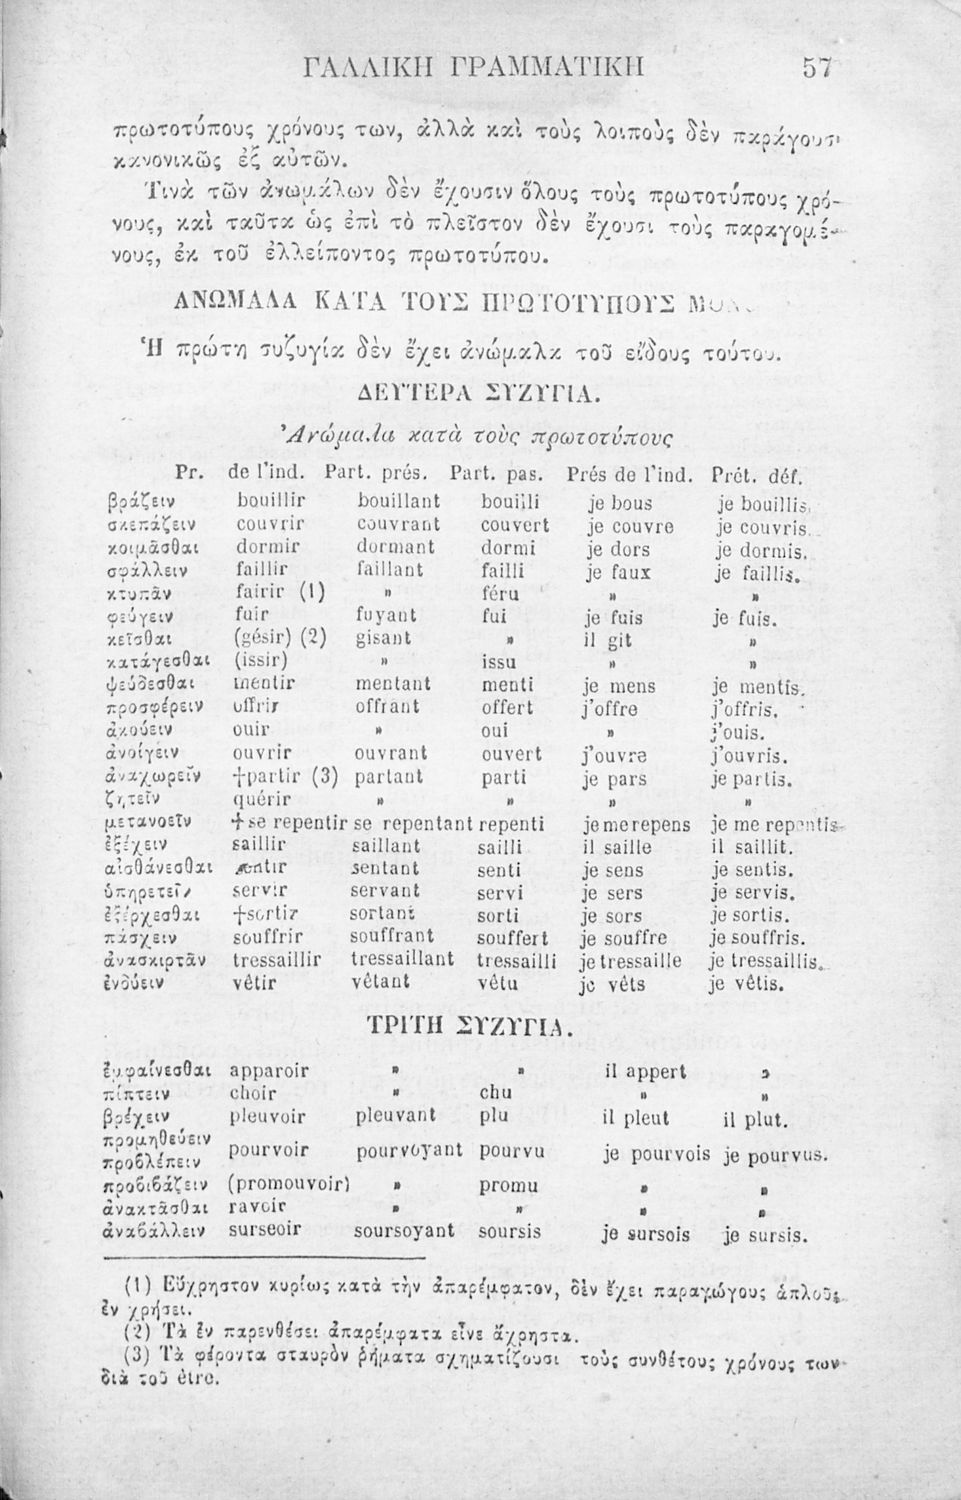 ΓΑΛΛΙΚΗ ΓΡΑΜΜΑΤΙΚΗ 57
πρωτοτύπους χρόνους των, ἀλλὰ καὶ τοὺς λοιποὺς δὲν παράγουσι
κανονικῶς ἐξ αὐτῶν.
Τινὰ τῶν ἀνωμάλων δὲν ἔχουσιν ὅλους τοὺς πρωτοτύπους χρό-
νους, καὶ ταῦτα ὡς ἐπὶ τὸ πλεῖστον δὲν ἔχουσι τοὺς παραγομέ-
νους, ἐκ τοῦ ἐλλείποντος πρωτοτύπου.
ΑΝΩΜΑΛΑ ΚΑΤΑ ΤΟΥΣ ΠΡΩΤΟΤΥΠΟΥΣ
Ἡ πρώτη συζυγία δὲν ἔχει ἀνώμαλα τοῦ εἴδους τούτου.
ΔΕΥΤΕΡΑ ΣΥΖΥΓΙΑ.
Ἀνώμαλα κατὰ τοὺς πρωτοτύπους
Pr. de l'ind. Part. prés. Part. pas. Prés de l'ind. Prét. déf.
βράζειν bouillir bouillant bouilli je bous je bouillis.
σκεπάζειν couvrir couvrant couvert je couvre je couvris.
κοιμᾶσθαι dormir dormant dormi je dors je dormis.
σφάλλειν faillir faillant failli je faux je faillis.
κτυπᾶν fairir (1) » féru » »
φεύγειν fuir fuyant fui je fuis je fuis.
κεῖσθαι (gésir) (2) gisant » il git »
κατάγεσθαι (issir) » issu » »
ψεύδεσθαι mentir mentant menti je mens je mentis.
προσφέρειν offrir offrant offert j'offre j'offris.
ἀκούειν ouir » oui » j'ouis.
ἀνοίγειν ouvrir ouvrant ouvert j'ouvre j'ouvris.
ἀναχωρεῖν †partir (3) partant parti je pars je partis.
ζητεῖν quérir » » » »
μετανοεῖν †se repentir se repentant repenti je me repens je me repentis
ἐξέχειν saillir saillant sailli il saille il saillit.
αἰσθάνεσθαι sentir sentant senti je sens je sentis.
ὑπηρετεῖν servir servant servi je sers je servis.
ἐξέρχεσθαι †sortir sortant sorti je sors je sortis.
πάσχειν souffrir souffrant souffert je souffre je souffris.
ἀνασκιρτᾶν tressaillir tressaillant tressailli je tressaille je tressaillis.
ἐνδύειν vêtir vêtant vêtu je vêts je vêtis.
ΤΡΙΤΗ ΣΥΖΥΓΙΑ.
ἐμφαίνεσθαι apparoir » » il appert »
πίπτειν choir » chu » »
βρέχειν pleuvoir pleuvant plu il pleut il plut.
προμηθεύειν
προβλέπειν pourvoir pourvoyant pourvu je pourvois je pourvus.
προβιβάζειν (promouvoir) » promu » »
ἀνακτᾶσθαι ravoir » » » »
ἀναβάλλειν surseoir soursoyant soursis je sursois je sursis.
(1) Εὔχρηστον κυρίως κατὰ τὴν ἀπαρέμφατον, δὲν ἔχει παραγώγους ἁπλοῦς
ἐν χρήσει.
(2) Τὰ ἐν παρενθέσει ἀπαρέμφατα εἶνε ἄχρηστα.
(3) Τὰ φέροντα σταυρὸν ῥήματα σχηματίζουσι τοὺς συνθέτους χρόνους των
διὰ τοῦ être.